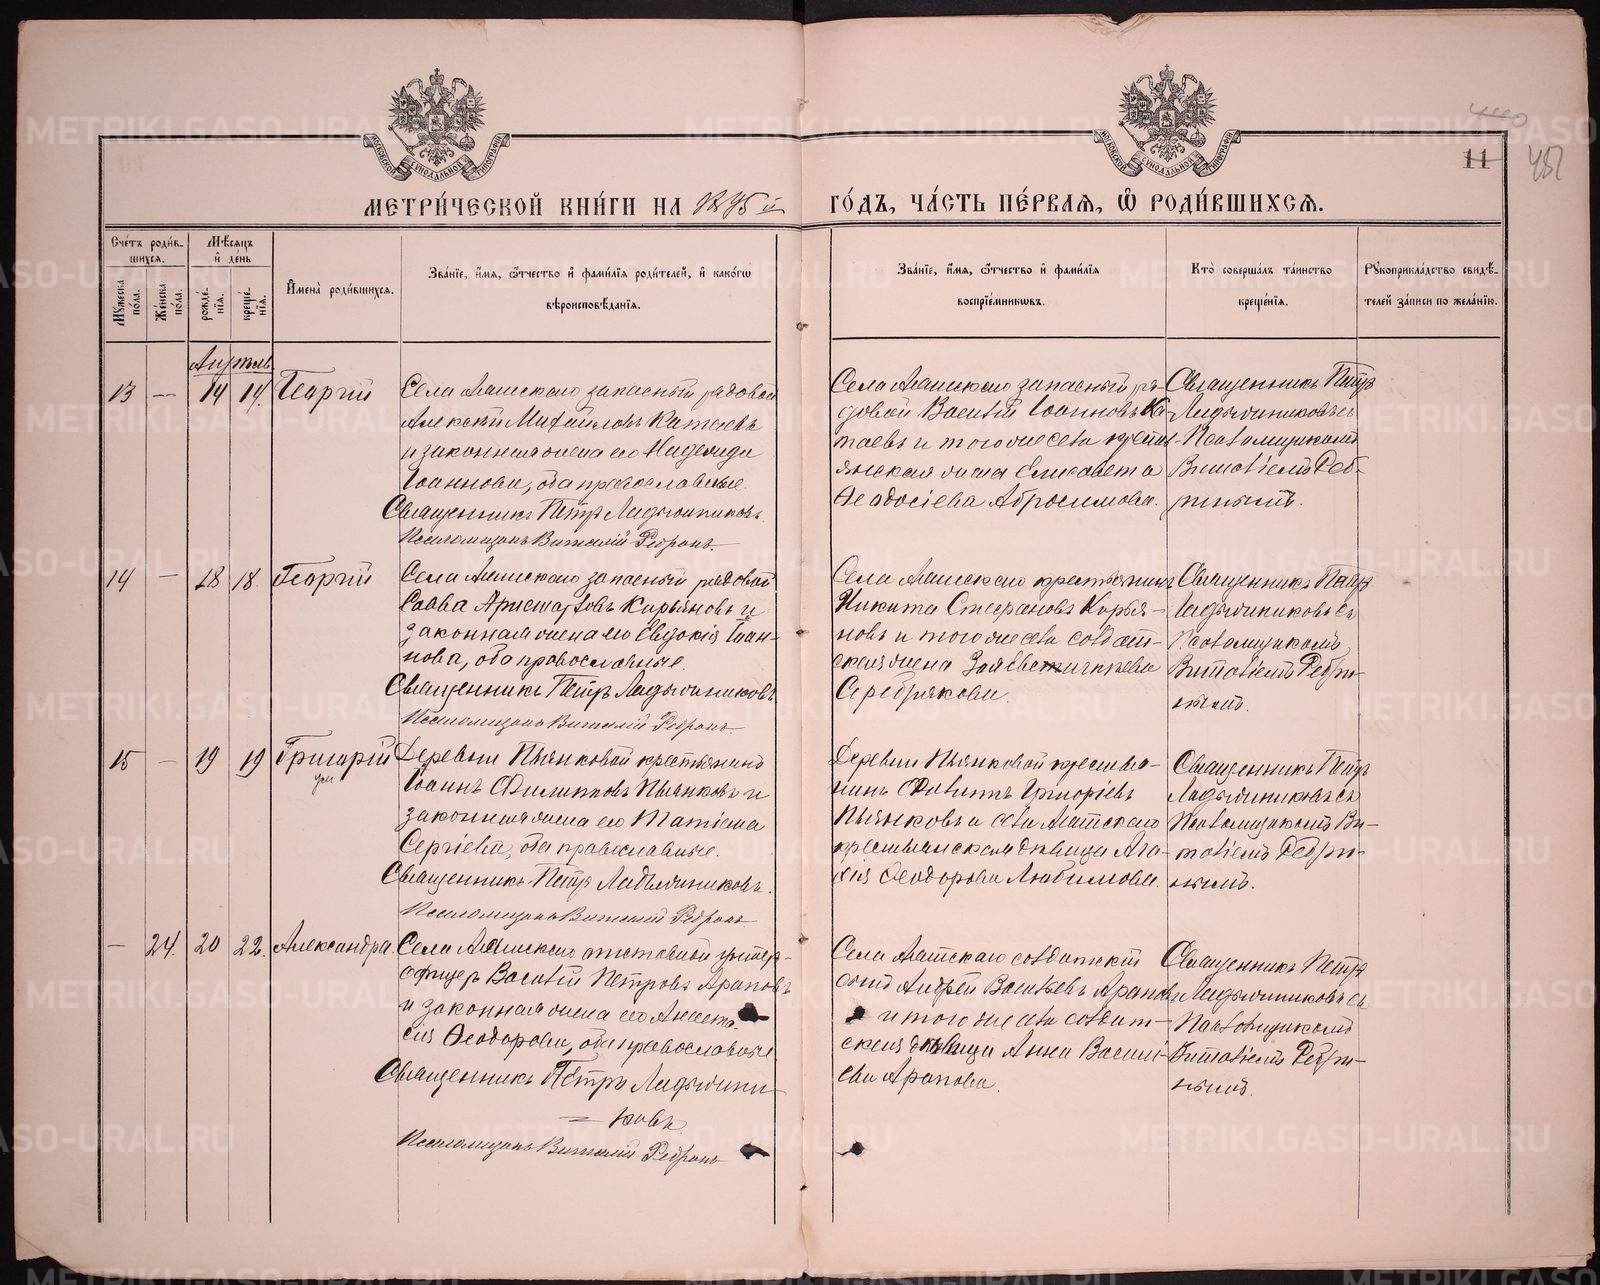 440
11
451
МОСКОВСКОЙ СѴНОДАЛЬНОЙ ТИПОГРАФІИ
МОСКОВСКОЙ СѴНОДАЛЬНОЙ ТИПОГРАФІИ
МЕТРИ́ЧЕСКОЙ КНИ́ГИ НА 1895 й
ГО́ДЪ, ЧА́СТЬ ПЕ́РВАЯ, Ѡ РОДИ́ВШИХСЯ.
Сче́тъ роди́вшихся.
Мѹжеска по́ла.
Же́нска по́ла.
Мѣ́сяцъ и де́нь
рожде́нїя.
креще́нїя.
И́мена̀ роди́вшихся.
Зва́нїе, и́мя, ѻ́тчество и фами́лїя роди́телей, и како́гѡ
вѣроисповѣ́данїя.
Зва́нїе, и́мя, ѻ́тчество и фами́лїя
воспрїе́мникѡвъ.
Кто̀ соверша́лъ та́инство
креще́нїя.
Рѹкоприкла́дство свидѣ́-
телей за́писи по жела́нїю.
Апрѣль
13 — 14 14. Георгій
Села Аятскаго запасный рядовой
Алексѣй Михайловъ Катаевъ
и законная жена его Надежда
Іоаннова, оба православные.
Священникъ Петръ Ладыжниковъ.
Псаломщикъ Виталій Ребринъ.
Села Аятскаго запасный ря-
довой Василій Іоанновъ Ка-
таевъ и того же села крестьянская жена Елисавета
Ѳеодосіева Абросимова.
Священникъ Петръ
Ладыжниковъ съ
Псаломщикомъ
Виталіемъ Реб-
ринымъ.
14 — 18 18. Георгій
Села Аятскаго запасный рядовой
Савва Аристарховъ Кирьяновъ и
законная жена его Евдокія Іоан-
нова, оба православные.
Священникъ Петръ Ладыжниковъ
Псаломщикъ Виталій Ребринъ
Села Аятскаго крестьянинъ
Никита Стефановъ Кирья-
новъ и того же села солдат-
ская жена
Серебрякова.
Священникъ Петръ
Ладыжниковъ съ
Псаломщикомъ
Виталіемъ Ребри-
нымъ.
15 — 19 19 Григорій
ум
Деревни Пьянковой крестьянинъ
Іоаннъ Филипповъ Пьянковъ и
законная жена его Татіана
Сергіева, оба православные.
Священникъ Петръ Ладыжниковъ.
Псаломщикъ Виталій Ребринъ
Деревни Пьянковой крестья-
нинъ Филиппъ Григоріевъ
Пьянковъ и села Аятскаго
крестьянская дѣвица Ага-
ѳія Ѳеодорова Любимова.
Священникъ Петръ
Ладыжниковъ съ
Псаломщикомъ Ви-
таліемъ Ребри-
нымъ.
— 24. 20 22. Александра.
Села Аятскаго отставной унтеръ-
офицеръ Василій Петровъ Араповъ
и законная жена его Анаста-
сія Ѳеодорова, оба православные
Священникъ Петръ Ладыжни-
ковъ.
Псаломщикъ Виталій Ребринъ
Села Аятскаго солдатскій
сынъ Андрей Васильевъ Араповъ
и того же села солдат-
ская дѣвица Анна Василі-
ева Арапова.
Священникъ Петръ
Ладыжниковъ съ
Псаломщикомъ
Виталіемъ Ребри-
нымъ.